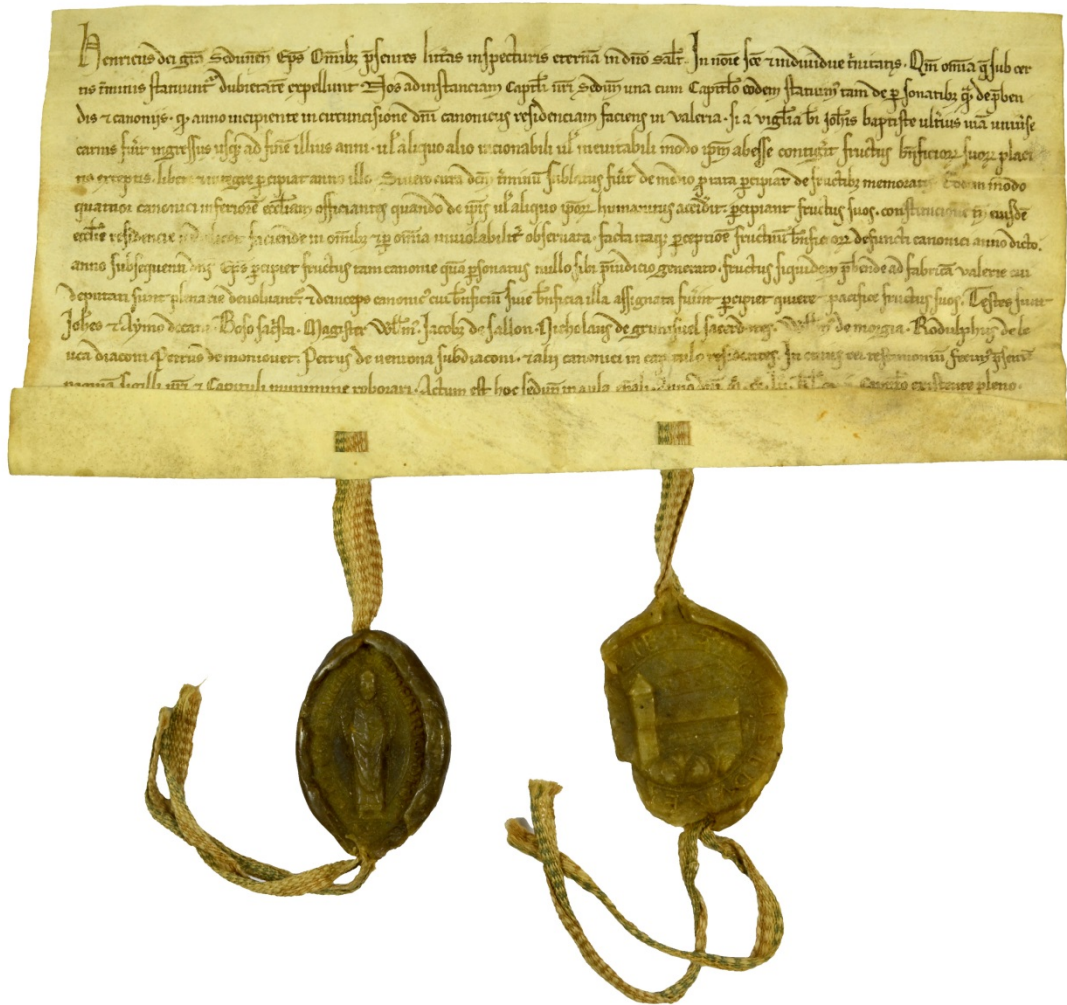 Henricus dei gra Sedunen Eps Omibz psentes litas inspecturis eternam in dno salt. In noie sce & individue tinitatis. Qm omia q sub cer
tis tminis statuunt dubietate expellunt Nos ad instanciam Capitli nri Sedun una cum Capitlo eodem statuim tam de psonatibz q de pben
dis & canoniis. q anno incipiente in circuncisione dni canonicus residenciam faciens in valeria. si a vigilia bi Johis baptiste ultius viam univse
carnis fuit ingressus usq ad fine illius anni. ul aliquo alio racionabili ul inevitabili modo ipm abesse contigit fructus bnficior suor placi
tis exceptis. libere & integre pcipiat anno illo. Si vero citra dcm tminu sublatus fuit de medio p rata pcipiat de fructibz memoratis Eodem modo
quatuor canonici inferiore eccliam officiantes quando de ipis ul aliquo ipor humanitus accidit. pcipiant fructus suos. constitucione eiusde
ecclie residencie faciende in omibz & p omia inviolabilit observata. facta itaq pceptione fructuu bnficior defuncti canonici anno dicto.
anno subsequenti dns Eps pcipiet fructus tam canonie qua psonatus nullo sibi piudicio generato. fructus siquidem pbende ad fabrica valerie
deputati sunt plenarie devoluant & deinceps canonic cui bnficium sive bnficia illa assignata fuint pcipiet quiete & pacifice fructus suos. Testes sunt
Johes & Aymo decani. Boso sacsta. Magister Willm. Jacobz de sallon. Nicholaus de grunsuel sacerdotes. Willm de morgia. Rodulphus de le
uca diaconi. Petrus de moniovet. Petrus de ventona subdiaconi. & alii canonici in capitulo residentes. In cuius rei testimonium fecim psente
paginam sigilli nri & Capituli munimine roborari. Actum est hoc sedun in aula Anno Capitlo existente pleno.